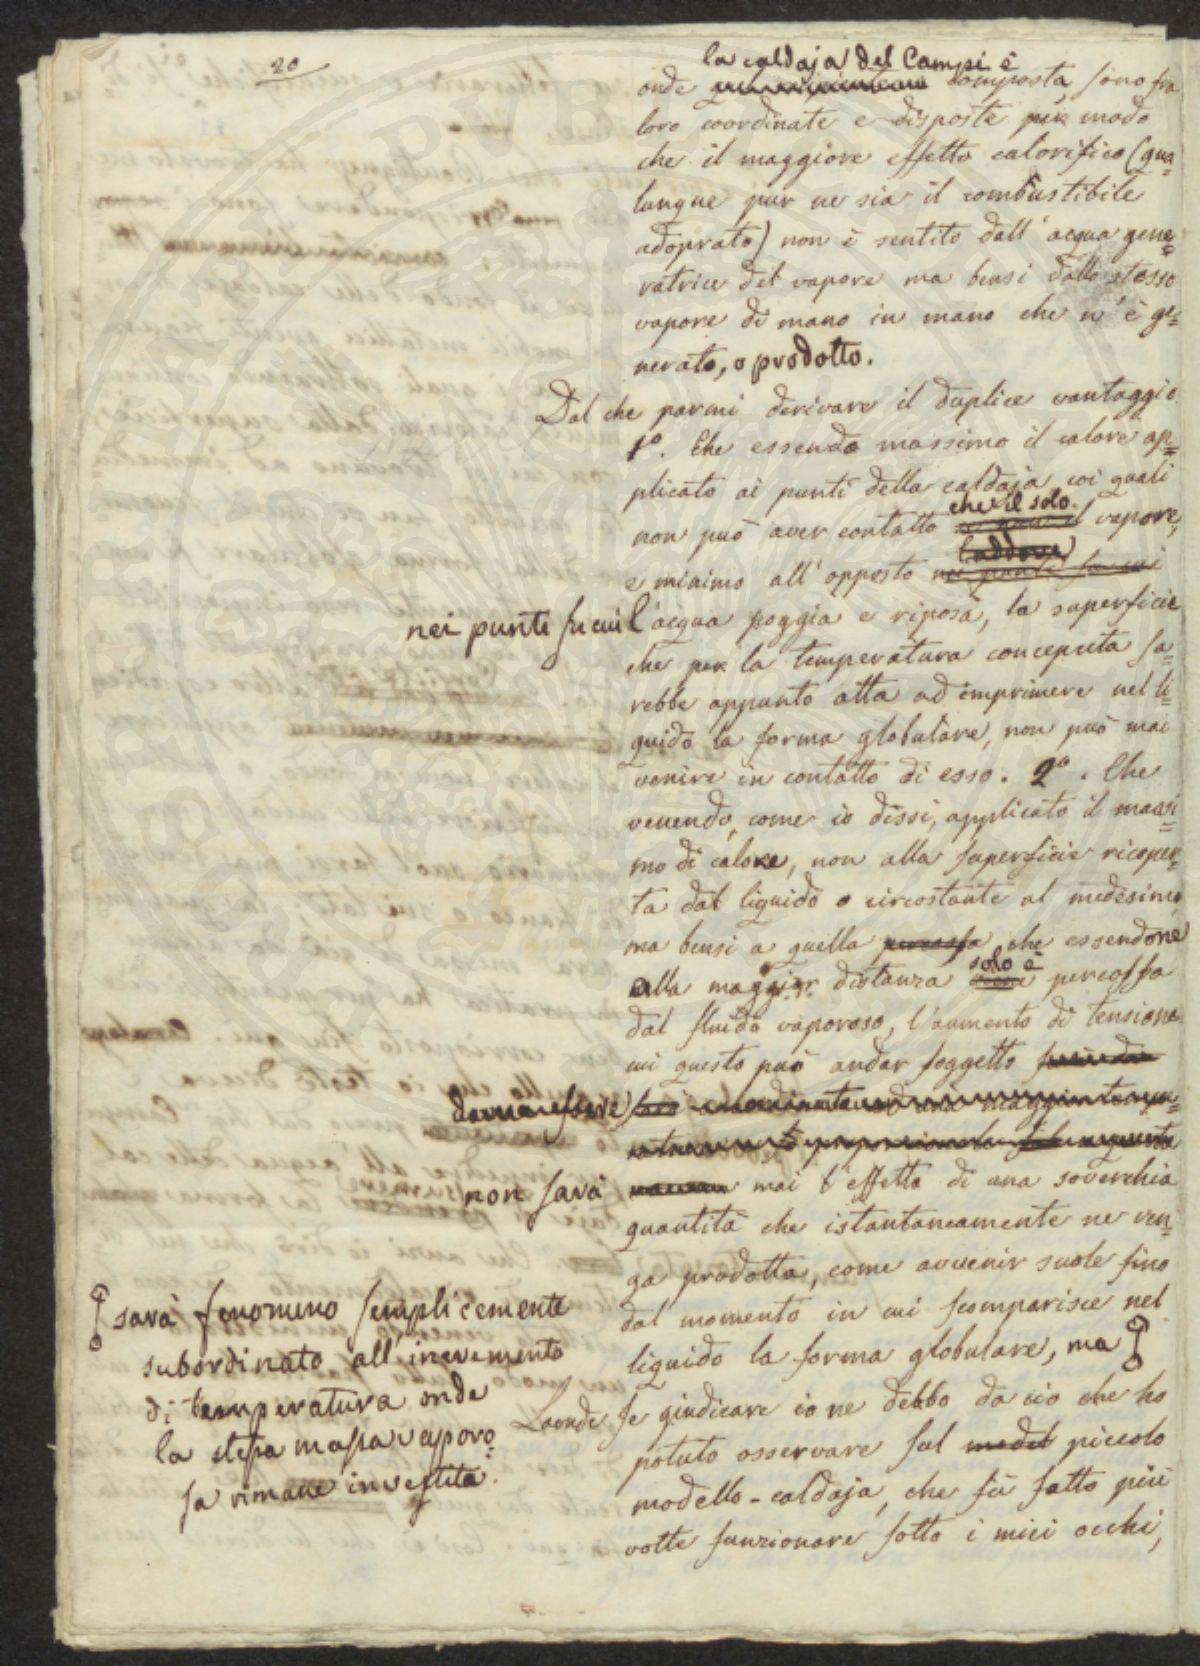 20
la caldaja del Campi è
onde composta, sono fra
loro coordinate e disposte per modo
che il maggiore effetto calorifico (qua=
lunque pur ne sia il combustibile
adoprato) non è sentito dall' acqua gene=
ratrice del vapore ma bensi dallo stesso
vapore di mano in mano che n' è ge=
nerato, o prodotto.
Dal che parmi derivare il duplice vantaggio
1º. Che essendo massimo il calore ap=
plicato ai punti della caldaja coi quali
che il solo
non può aver contatto vapore,
e minimo all' opposto nei punti su cui
nei punti su cui l'acqua poggia e riposa, la superficie
che per la temperatura concepita sa=
rebbe appunto atta ad imprimere nel li=
quido la forma globulare, non può mai
venire in contatto di esso. 2º. Che
venendo, come io dissi, applicato il massi=
mo di calore, non alla superficie ricoper=
ta dal liquido o circostante al medesimo,
ma bensi a quella percossa che essendone
solo è
alla maggior distanza percossa
dal fluido vaporoso, l'aumento di tensione
cui questo può andar soggetto
non sarà mai l'effetto di una soverchia
quantità che istantaneamente ne ven=
ga prodotta, come avvenir suole fino
dal momento in cui scomparisce nel
liquido la forma globulare, ma
sarà fenomeno semplicemente
subordinato all' incremento
di temperatura onde
la stessa massa vaporo=
sa rimane investita.
Laonde se giudicare io ne debbo da ciò che ho
potuto osservare sul model piccolo
modello-caldaja, che fù fatto più
volte funzionare sotto i miei occhi,